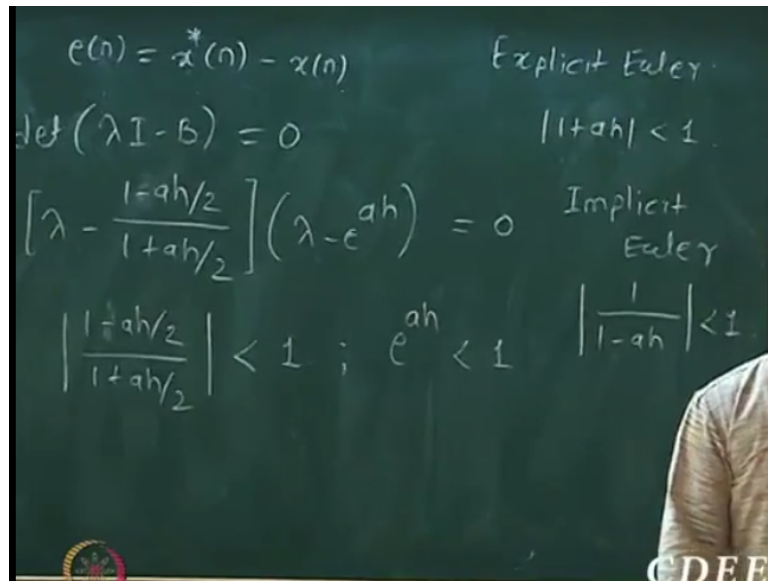 e(n) = x*(n) - x(n)
det(λI - B) = 0
[λ - (1-ah/2)/(1+ah/2)](λ - e^{ah}) = 0
|(1-ah/2)/(1+ah/2)| < 1 ; e^{ah} < 1
Explicit Euler.
|1+ah| < 1.
Implicit
Euler
|1/(1-ah)| < 1.
CDEE